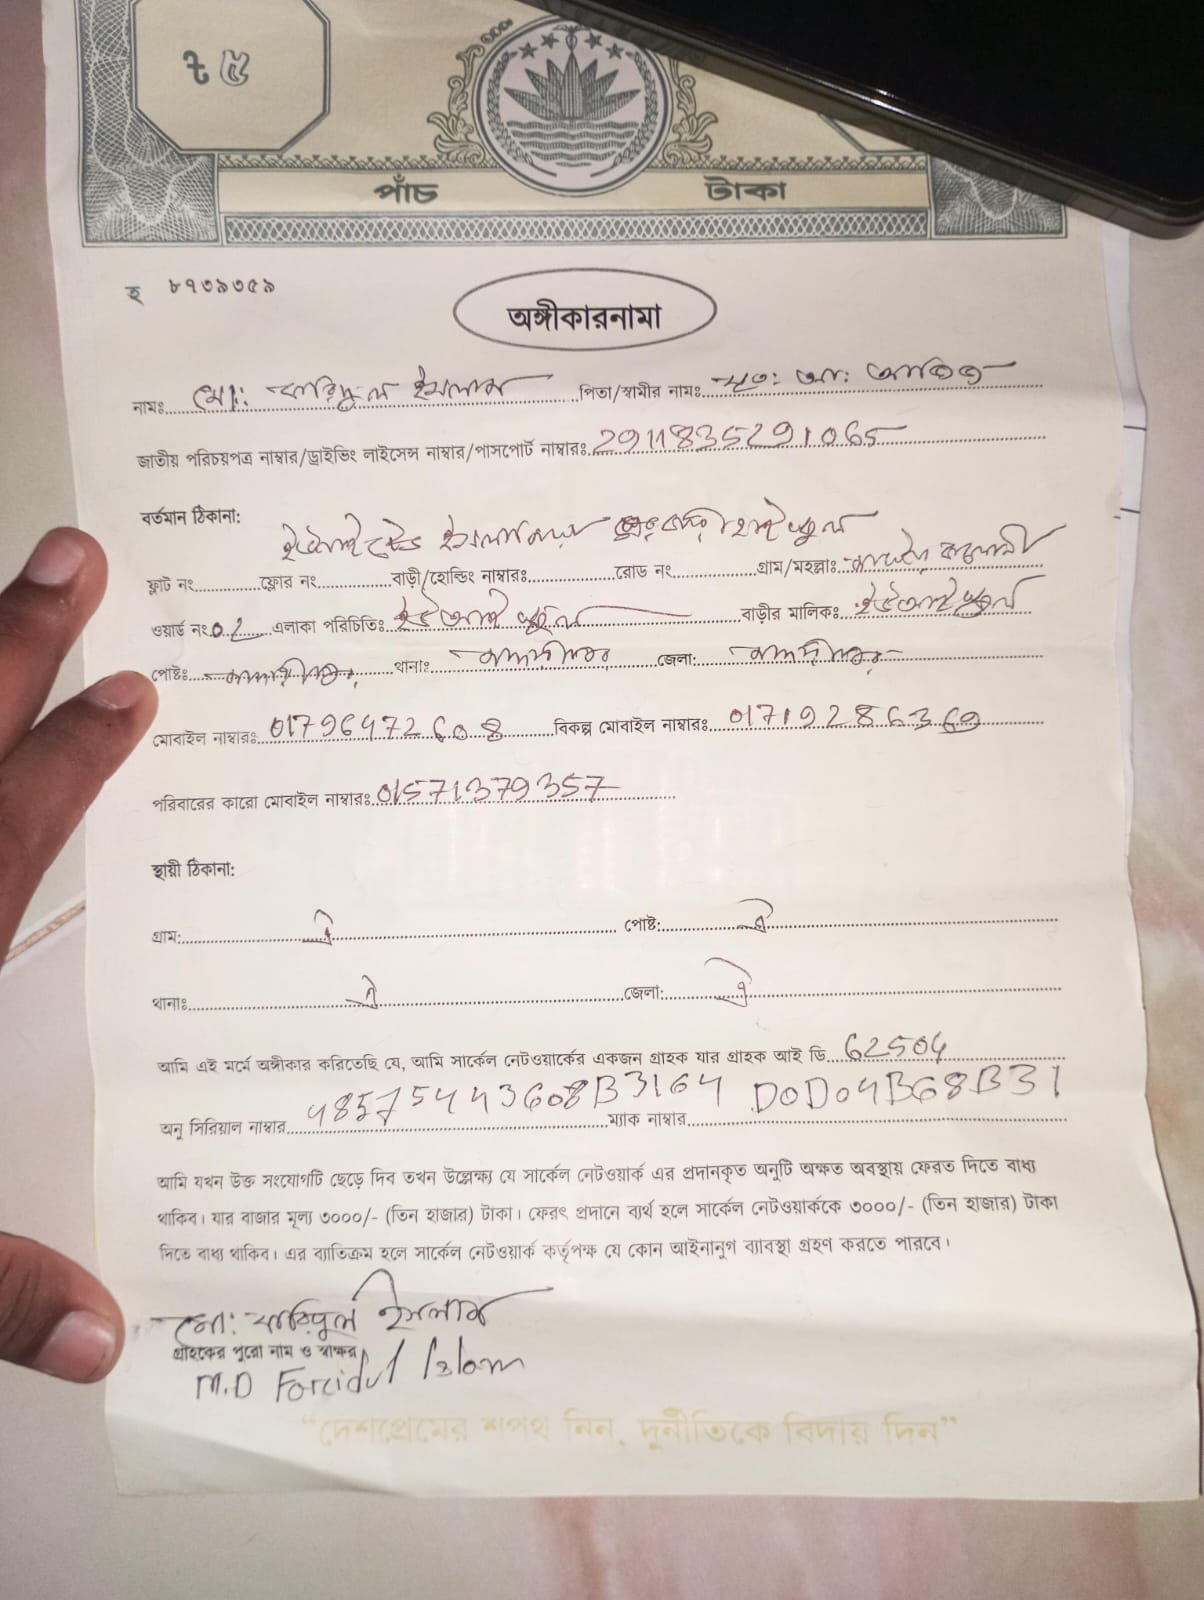 ৳ ৫
পাঁচ টাকা
হ ৮৭৩৯৩৫৯
অঙ্গীকারনামা
নামঃ মো: ফরিদুল ইসলাম পিতা/স্বামীর নামঃ মৃত: আ:
জাতীয় পরিচয়পত্র নাম্বার/ড্রাইভিং লাইসেন্স নাম্বার/পাসপোর্ট নাম্বারঃ 2911835291065
বর্তমান ঠিকানা:
ফ্লাট নং ফ্লোর নং বাড়ী/হোল্ডিং নাম্বারঃ রোড নং গ্রাম/মহল্লাঃ
ওয়ার্ড নং 02 এলাকা পরিচিতিঃ বাড়ীর মালিকঃ
পোষ্টঃ থানাঃ জেলা:
মোবাইল নাম্বারঃ 01796472608 বিকল্প মোবাইল নাম্বারঃ 01719286369
পরিবারের কারো মোবাইল নাম্বারঃ 01571379357
স্থায়ী ঠিকানা:
গ্রাম: ঐ পোষ্ট: ঐ
থানাঃ ঐ জেলা: ঐ
আমি এই মর্মে অঙ্গীকার করিতেছি যে, আমি সার্কেল নেটওয়ার্কের একজন গ্রাহক যার গ্রাহক আই ডি 62504
অনু সিরিয়াল নাম্বার 485754443608B3164 ম্যাক নাম্বার D0D04B68B31
আমি যখন উক্ত সংযোগটি ছেড়ে দিব তখন উল্লেক্ষ্য যে সার্কেল নেটওয়ার্ক এর প্রদানকৃত অনুটি অক্ষত অবস্থায় ফেরত দিতে বাধ্য
থাকিব। যার বাজার মূল্য ৩০০০/- (তিন হাজার) টাকা। ফেরৎ প্রদানে ব্যর্থ হলে সার্কেল নেটওয়ার্ককে ৩০০০/- (তিন হাজার) টাকা
দিতে বাধ্য থাকিব। এর ব্যাতিক্রম হলে সার্কেল নেটওয়ার্ক কর্তৃপক্ষ যে কোন আইনানুগ ব্যাবস্থা গ্রহণ করতে পারবে।
মো: ফরিদুল ইসলাম
গ্রাহকের পুরো নাম ও স্বাক্ষর
M.D Foridul Islam
“দেশপ্রেমের শপথ নিন, দুর্নীতিকে বিদায় দিন”